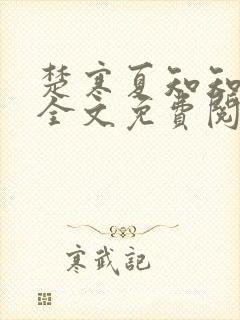 楚寒夏知知
全文免費閱
寒武記